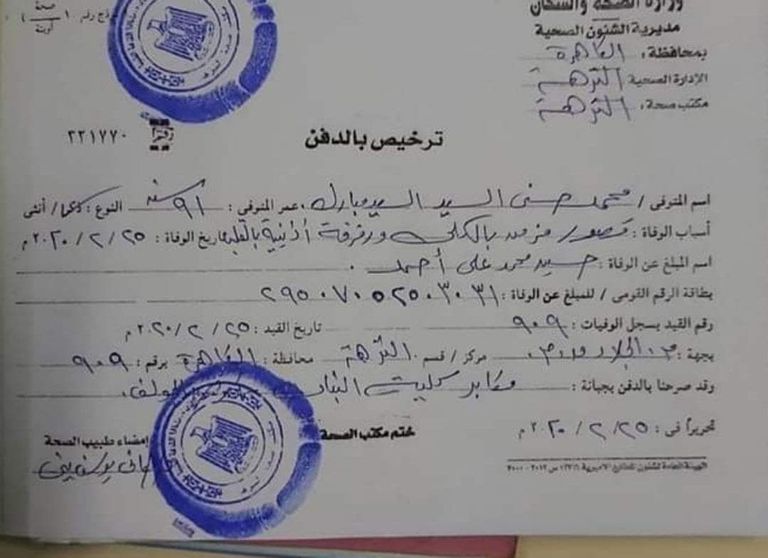 وزارة الصحة والسكان
مديرية الشئون الصحية
بمحافظة : القاهرة
الإدارة الصحية : النزهة
مكتب صحة : النزهة
صحة
نموذج رقم ( ١ )
ترخيص بالدفن
رقم ٢٢١٧٧٠
اسم المتوفى / محمد حسنى السيد السيد مبارك عمر المتوفى : ٩١ سنة النوع : ذكر / أنثى
أسباب الوفاة : قصور مزمن بالكلى ورفرفة أذنية بالقلب تاريخ الوفاة : ٢٥ / ٢ / ٢٠٢٠ م
اسم المبلغ عن الوفاة : حسيد محمد على أحمد
بطاقة الرقم القومى / للمبلغ عن الوفاة : ٢٩٥٠٧٠٥٢٥٠٣٠٣١
رقم القيد بسجل الوفيات : ٩٠٩ تاريخ القيد : ٢٥ / ٢ / ٢٠٢٠ م
بجهة : م. الجلاء مركز / قسم النزهة محافظة : القاهرة برقم : ٩٠٩
وقد صرحنا بالدفن بجبانة : مقابر كلية البنات
تحريراً فى : ٢٥ / ٢ / ٢٠٢٠ م
ختم مكتب الصحة
إمضاء طبيب الصحة
الهيئة العامة لشئون المطابع الأميرية